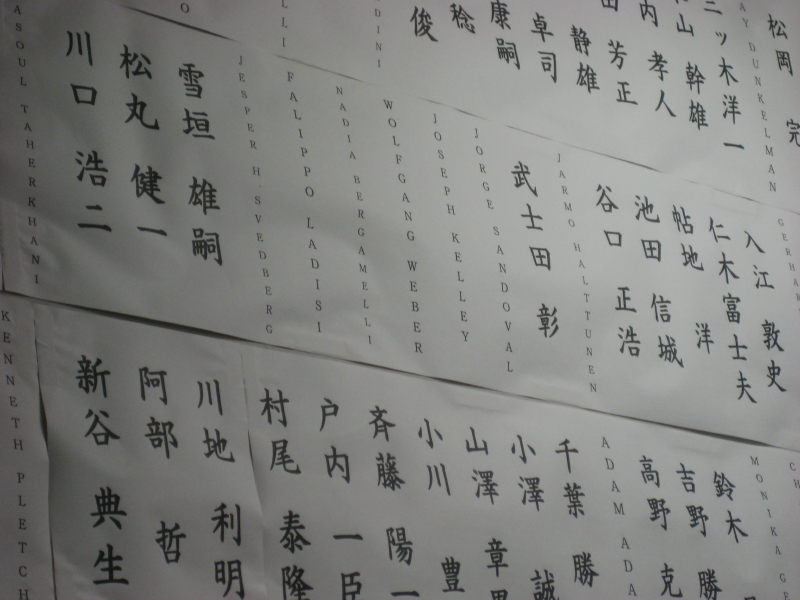 松岡 完
AY DUNKELMAN
三ツ木洋一
山 幹雄
内 孝人
田 芳正
静雄
卓司
康嗣
稔
俊
DINI
LLI
O
GERHAR
入江 敦史
仁木富士夫
帖地 洋
池田 信城
谷口 正浩
JARMO HALTTUNEN
武士田 彰
JORGE SANDOVAL
JOSEPH KELLEY
WOLFGANG WEBER
NADIA BERGAMELLI
FALIPPO LADISI
JESPER H. SVEDBERG
雪垣 雄嗣
松丸 健一
川口 浩二
ASOUL TAHERKHANI
CH
MONIKA GE
鈴木
吉野 勝
高野 克
ADAM ADA
千葉 勝
小澤 誠
山澤 章
小川 豊
斉藤 陽一
戸内 一臣
村尾 泰隆
川地 利明
阿部 哲
新谷 典生
KENNETH PLETCH